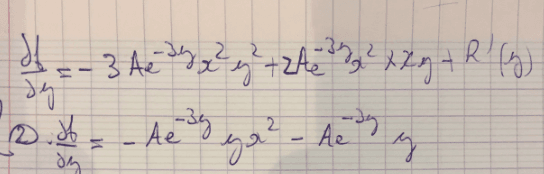 ∂f/∂y = - 3 Ae^{-3y} x² y² + 2Ae^{-3y} x² × 2y + R'(y)
②. ∂f/∂y = - Ae^{-3y} y x² - Ae^{-3y} y